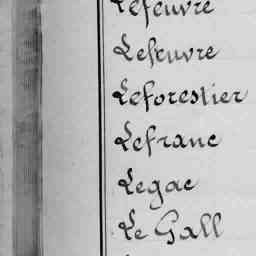 Lefeuvre
Lefeuvre
Leforestier
Lefranc
Legac
Le Gall